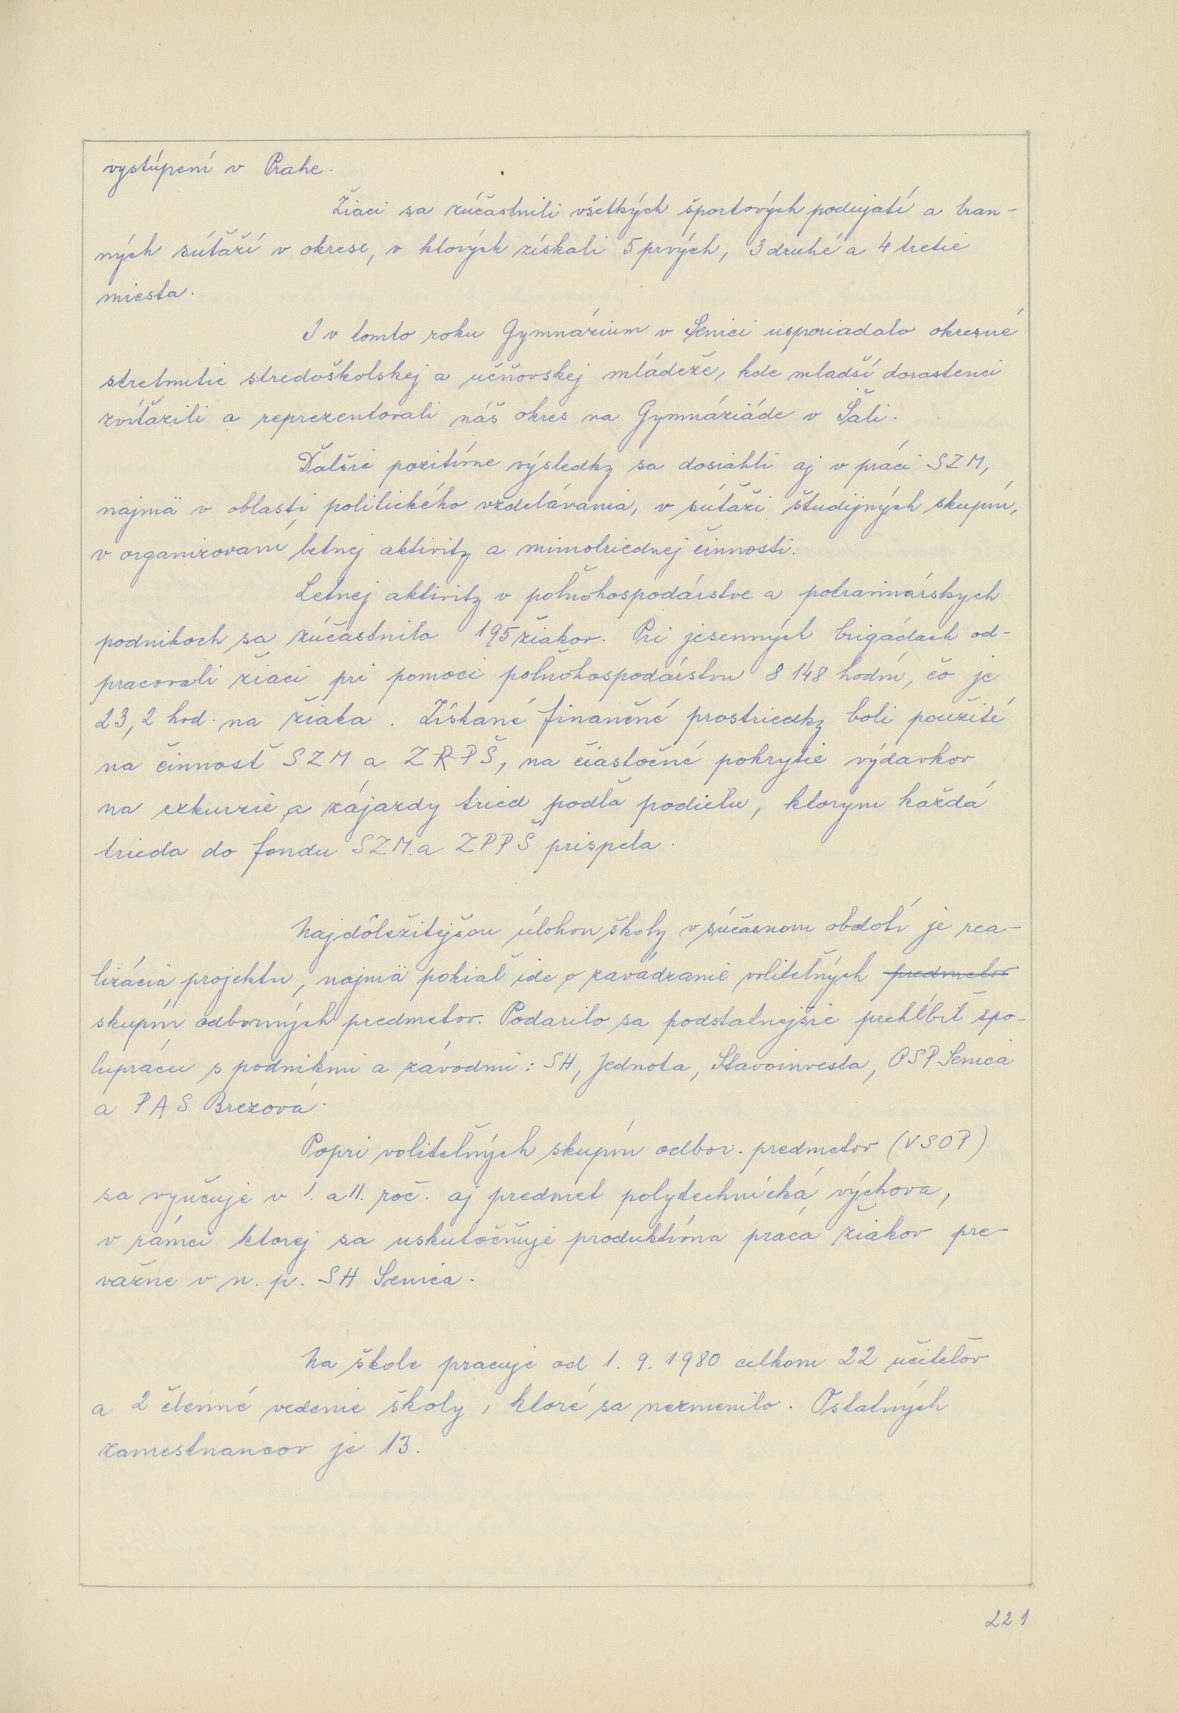 vystúpení v Prahe.
Žiaci sa zúčastnili všetkých športových podujatí a bran-
ných súťaží v okrese, v ktorých získali 5 prvých, 3 druhé a 4 tretie
miesta.
I v tomto roku Gymnázium v Senici usporiadalo okresné
stretnutie stredoškolskej a učňovskej mládeže, kde mladší dorastenci
zvíťazili a reprezentovali náš okres na Gymnáziáde v Šali.
Ďalšie pozitívne výsledky sa dosiahli aj v práci SZM,
najmä v oblasti politického vzdelávania, v súťaži študijných skupín,
v organizovaní letnej aktivity a mimotriednej činnosti.
Letnej aktivity v poľnohospodárstve a potravinárskych
podnikoch sa zúčastnilo 195 žiakov. Pri jesenných brigádach od-
pracovali žiaci pri pomoci poľnohospodárstvu 8 148 hodín, čo je
23,2 hod. na žiaka. Získané finančné prostriedky boli použité
na činnosť SZM a ZRPŠ, na čiastočné pokrytie výdavkov
na exkurzie a zájazdy tried podľa podielu, ktorým každá
trieda do fondu SZM a ZPPŠ prispela.
Najdôležitejšou úlohou školy v súčasnom období je rea-
lizácia projektu, najmä pokiaľ ide o zavádzanie voliteľných predmetov
skupín odborných predmetov. Podarilo sa podstatnejšie prehĺbiť spo-
luprácu s podnikmi a závodmi: SH, Jednota, Stavoinvesta, OSP Senica
a PAS Brezová.
Popri voliteľných skupín odbor. predmetov (VSOP)
sa vyučuje v I. a II. roč. aj predmet polytechnická výchova,
v rámci ktorej sa uskutočňuje produktívna práca žiakov pre-
važne v n. p. SH Senica.
Na škole pracuje od 1. 9. 1980 celkom 22 učiteľov
a 2 členné vedenie školy, ktoré sa nezmenilo. Ostatných
zamestnancov je 13.
221